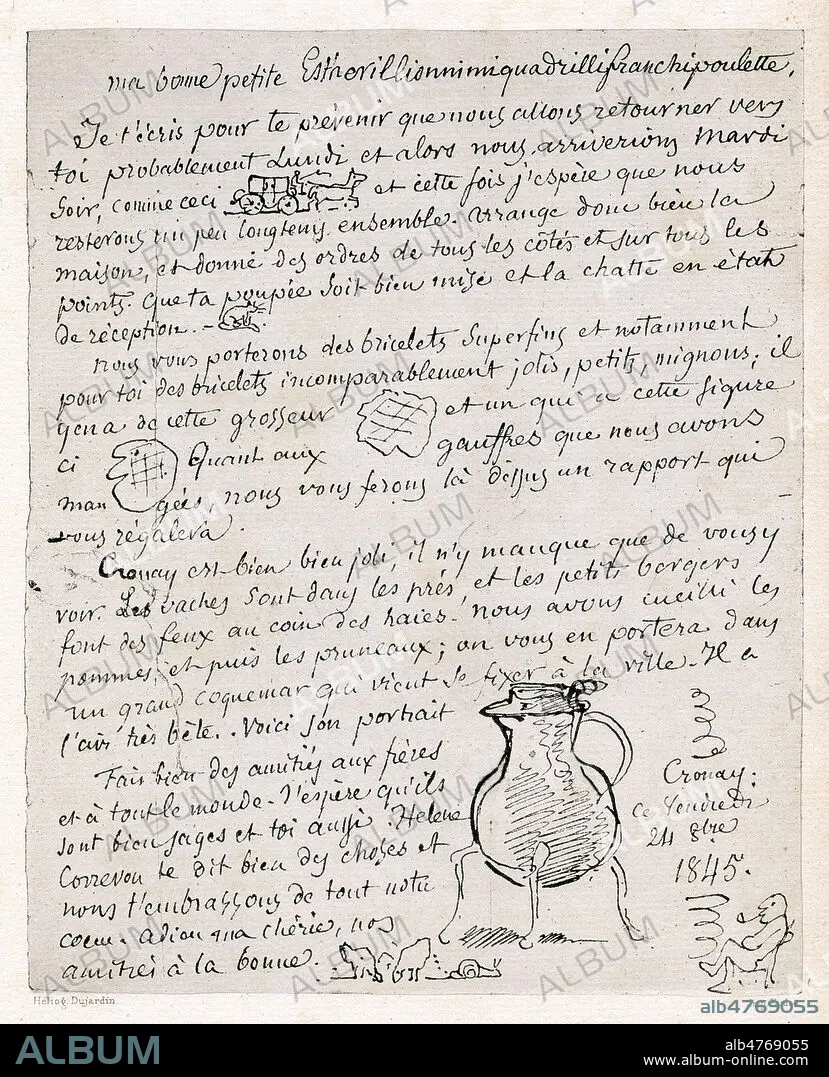 ma bonne petite Esthorillionnimiquadrillifranchipoulette,
Je t'écris pour te prevenir que nous allons retourner vers
toi probablement Lundi et alors nous arriverions Mardi
soir, comme ceci et cette fois j'espère que nous
resterons un peu longtems ensemble. Arrange donc bien la
maison, et donne des ordres de tous les côtés et sur tous les
points. Que ta poupée soit bien mise et la chatte en état
de réception. -
Nous vous porterons des bricelets superfins et notamment
pour toi des bricelets incomparablement jolis, petits, mignons; il
y en a de cette grosseur et un qui a cette figure
ci Quant aux gauffres que nous avons
man gées, nous vous ferons là dessus un rapport qui
vous régalera.
Cronay est bien bien joli, il n'y manque que de vous y
voir. Les vaches sont dans les prés, et les petits bergers
font des feux au coin des haies. Nous avons cueilli les
pommes, et puis les pruneaux; on vous en portera dans
un grand coquemar qui vient se fixer à la ville. Il a
l'air très bête. Voici son portrait
Fais bien des amitiés aux frères
et à tout le monde. J'espère qu'ils
sont bien sages et toi aussi. Helene
Correvon te dit bien des choses et
nous t'embrassons de tout notre
coeur. Adieu ma chérie, nos
amitiés à la bonne.
Cronay:
ce Vendredi
24 8bre
1845.
Héliog Dujardin
alb4769055
ALBUM
alb4769055
www.album-online.com